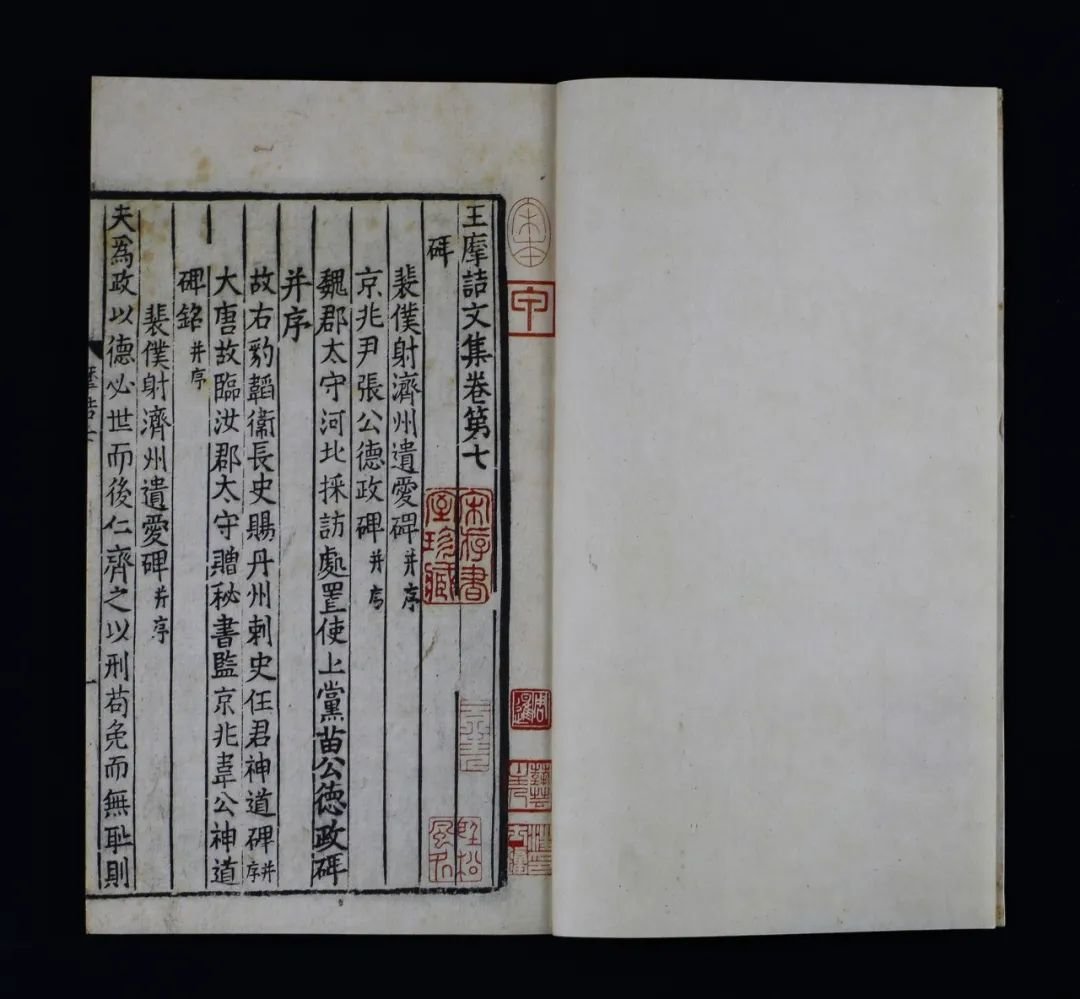 王摩詰文集卷第七
碑
裴僕射濟州遺愛碑并序
京兆尹張公德政碑并序
魏郡太守河北採訪處置使上黨苗公德政碑
并序
故右豹韜衞長史賜丹州刺史任君神道碑并序
大唐故臨汝郡太守贈秘書監京兆韋公神道
碑銘并序
裴僕射濟州遺愛碑并序
夫爲政以德必世而後仁齊之以刑苟免而無耻則
宋本
宋存書室珍藏
周暹